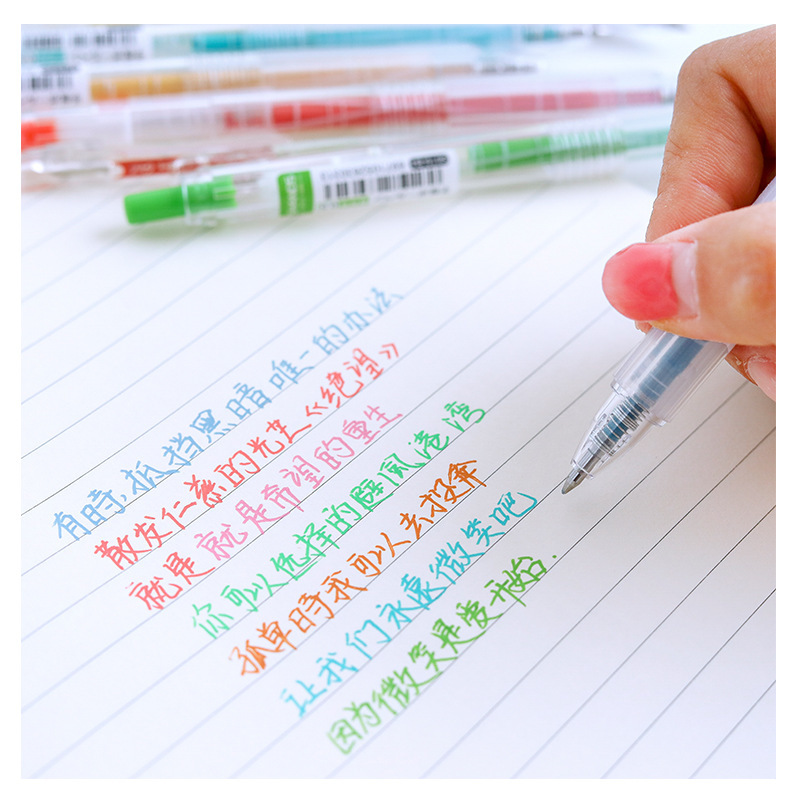 有時,抵挡黑暗唯一的办法
散发仁慈的光芒《绝望》
就是就是希望的重生
你可以选择的避风港湾
孤单時我可以去投奔
让我们永遠微笑吧
因为微笑是爱开始.